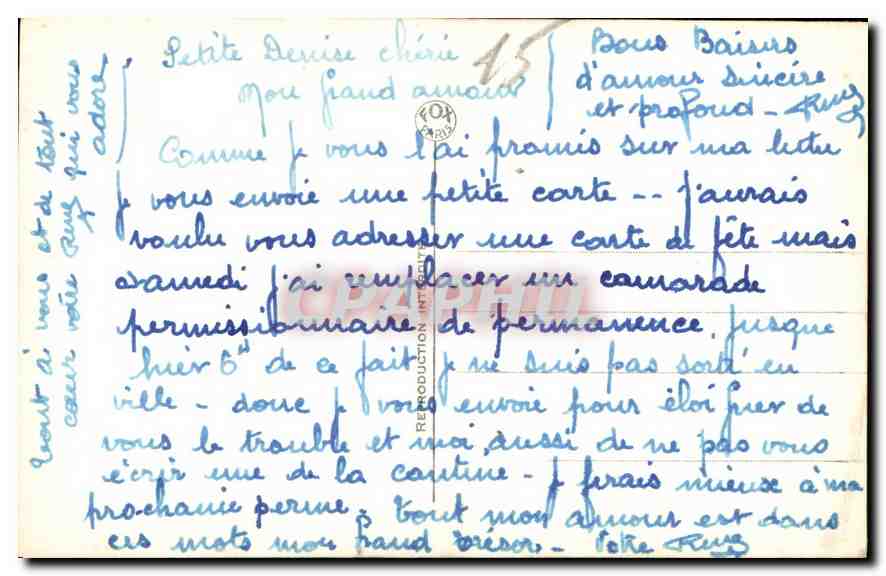 Petite Denise chérie
Mon grand amour
15
Bons Baisers
d'amour sincère
et profond - René
FOX
PARIS
Comme je vous l'ai promis sur ma lettre
je vous envoie une petite carte -- j'aurais
voulu vous adresser une carte de fête mais
samedi j'ai remplacer un camarade
permissionnaire de permanence, jusque
hier 6h de ce fait je ne suis pas sorti en
ville - donc je vous envoie pour éloigner de
vous le trouble et moi aussi de ne pas vous
écrir une de la cantine - je frais mieux à ma
prochaine perme. Tout mon amour est dans
ces mots mon grand trésor - Votre René
Tout à vous et de tout
cœur votre René qui vous
adore
REPRODUCTION INTERDITE
CPAPHIL